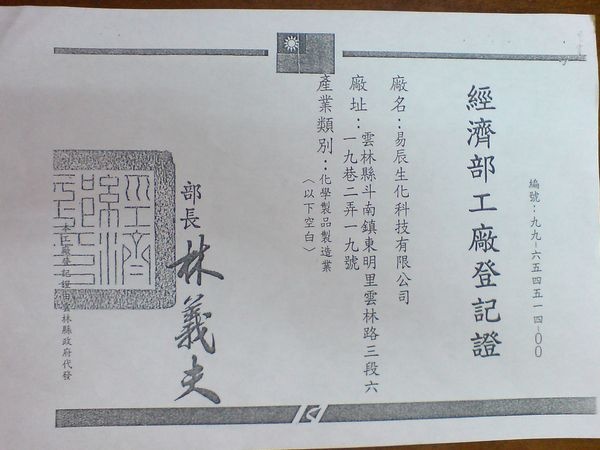 經濟部工廠登記證
編號：九九-六五四五一四-00
廠名：易辰生化科技有限公司
廠址：雲林縣斗南鎮東明里雲林路三段六
一九巷二弄一九號
產業類別：化學製品製造業
（以下空白）
部長 林義夫
本工廠登記證由雲林縣政府代發